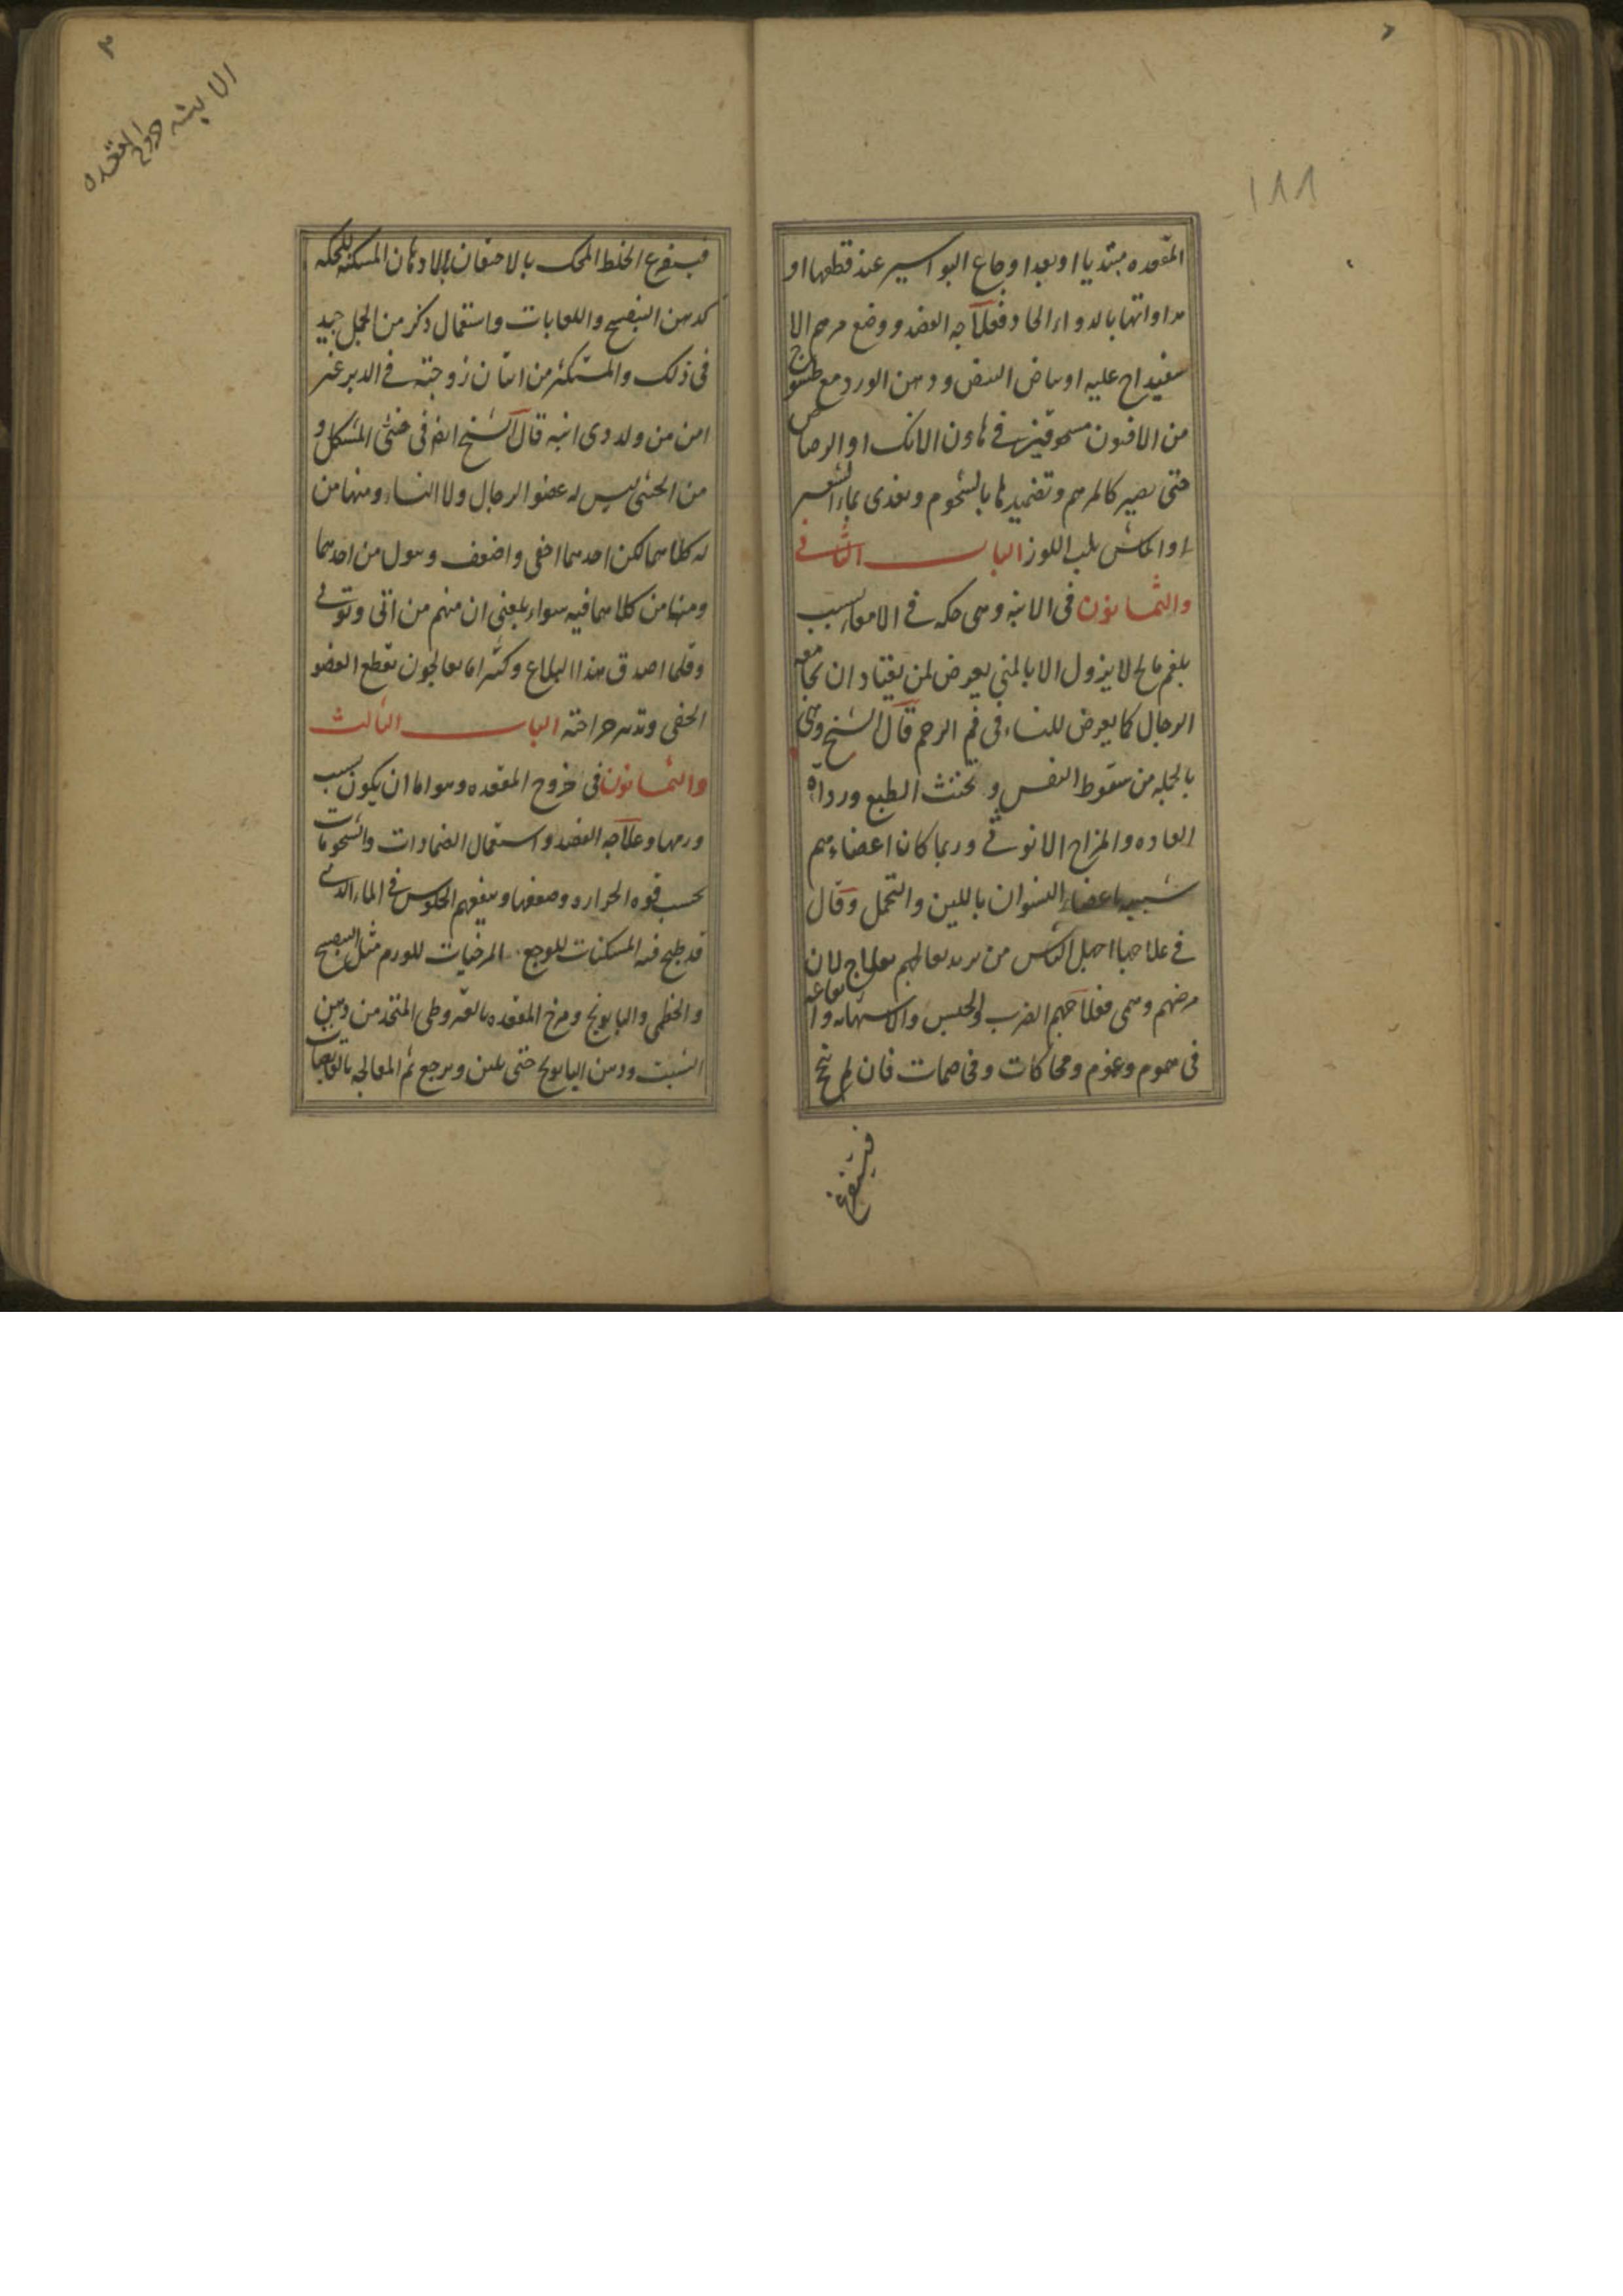 ١٨٨
المقعده مبتديا او بعد اوجاع البواسير عند قطعها او
مداواتها بالدواء الحاد فعلاجه الفصد ووضع مرهم الا
سفيداج عليه او بياض البيض ودهن الورد مع طسوج
من الافيون مسحوقين في هاون الانك او الرصاص
حتى يصير كالمرهم وتضميدها بالشحوم ويغذى بماء الشعير
او الماش بلب اللوز الباب الثاني
والثمانون في الابنه وهي حكه في الامعاء بسبب
بلغم مالح لا يزول الا بالمني يعرض لمن يعتاد ان تجامعه
الرجال كما يعرض للنساء في فم الرحم قال الشيخ وهي
بالجمله من سقوط النفس وتخنث الطبع ورداءة
العاده والمزاج الانوثي وربما كان اعضاءهم
شبيه باعضاء النسوان باللين والتحمل وقال
في علاجها اجهل الناس من يريد يعالجهم بعلاج لان
مرضهم وهمي فعلاجهم الضرب والحبس والاستهانه و
في هموم وغموم ومحاكات وفي صمات فان لم ينجح
فيستفرغ
٣
الابنه خروج المقعده
فيستفرغ الخلط المحك بالاحتقان بالادهان المسكنه للحكه
كدهن البنفسج واللعابات واستعمال ذكر من الجمل جيد
في ذلك والمستكثر من اتيان زوجته في الدبر غير
امن من ولد ذي ابنه قال الشيخ ايضا في خنثى المشكل و
من الخنثى ليس له عضو الرجال ولا النساء ومنها من
له كلاهما لكن احدهما اخفى واضعف ويبول من احدهما
ومنها من كلاهما فيه سواء بلغني ان منهم من اتى وتوتي
وقلما اصدق هذا البلاغ وكثيرا ما يعالجون بقطع العضو
الخفي وتدبير جراحته الباب الثالث
والثمانون في خروج المقعده وهو اما ان يكون بسبب
ورمها وعلاجه الفصد واستعمال الضمادات والشحومات
بحسب قوه الحراره وضعفها وينفعهم الجلوس في الماء الذي
قد طبخ فيه المسكنات للوجع المرخيات للورم مثل البنفسج
والخطمي والبابونج ومرخ المقعده بالقيروطي المتخذ من دهن
الشبت ودهن البابونج حتى يلين ويرجع ثم المعالجه بالقابضات